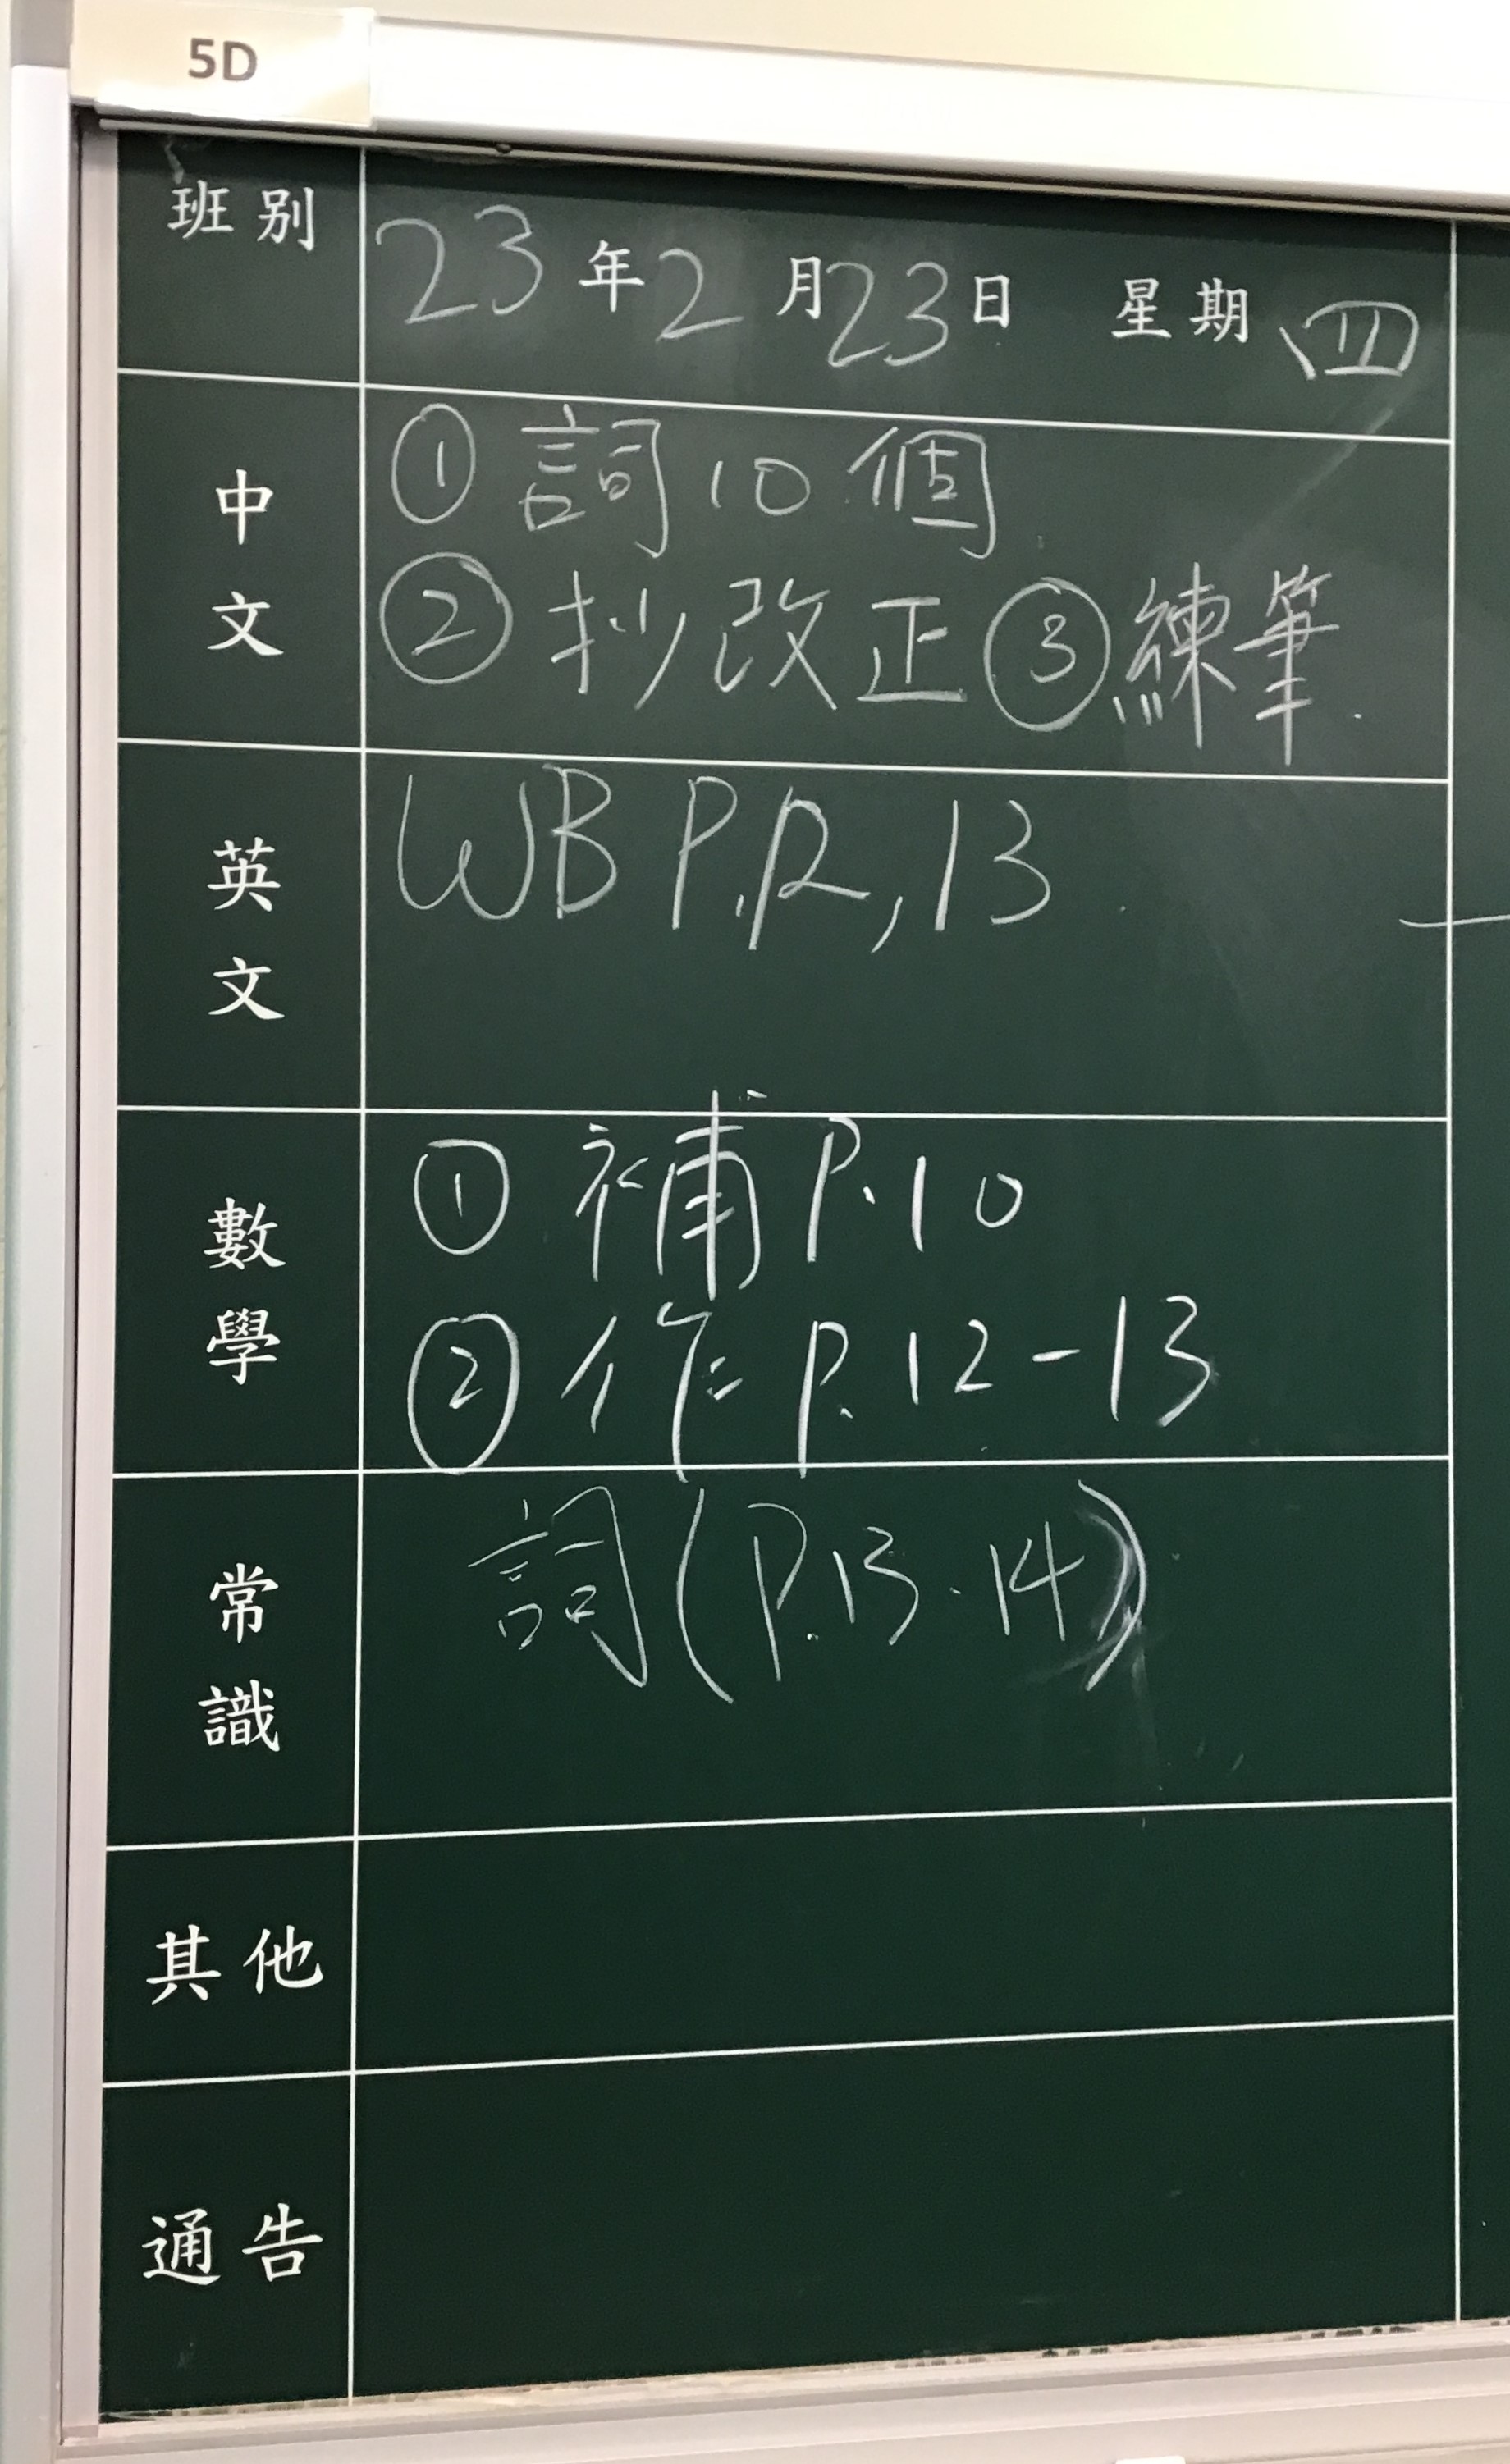 5D
班別 23年2月23日 星期四
中文 ①詞10個
②抄改正③練筆
英文 WB P.12,13
數學 ①補P.10
②作P.12-13
常識 詞(P.13-14)
其他
通告